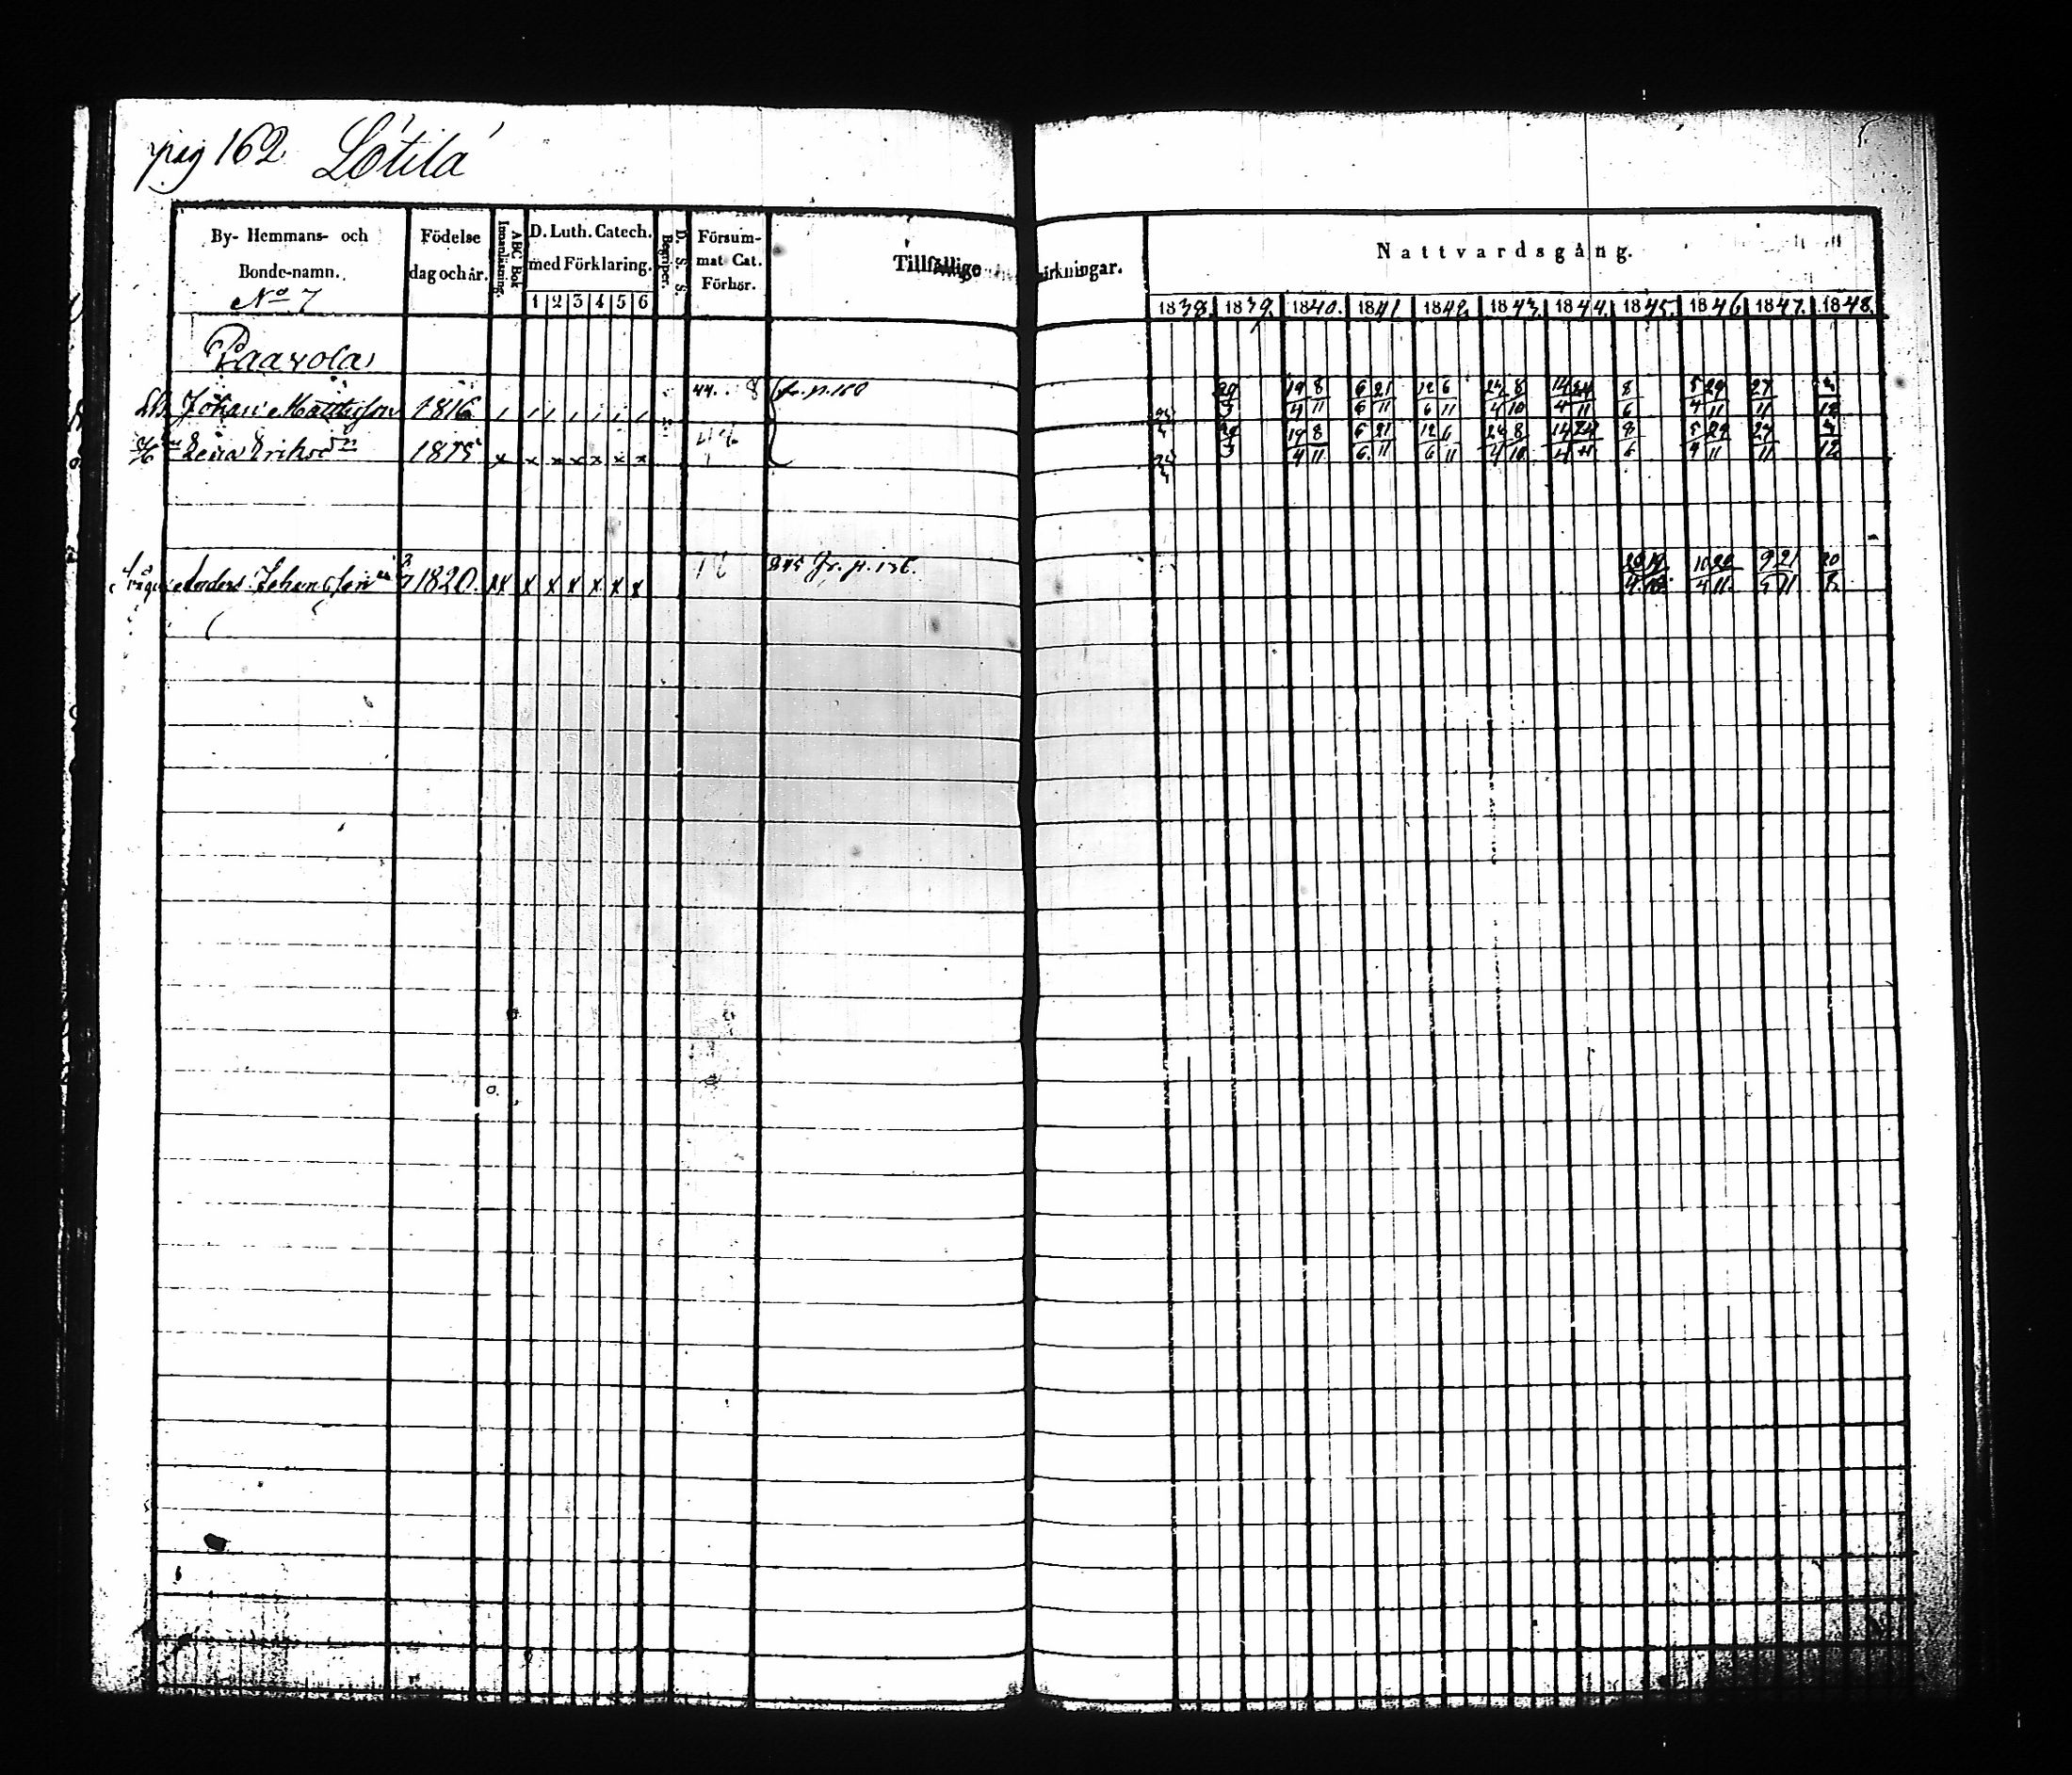 pag 162 Lotila
By- Hemmans- och Bonde-namn. Födelse dag och år. ABC Bok Innanläsning. D. Luth. Catech. med Förklaring. D. S. S. Begriper. Försum- mat Cat. Förhör. Tillfällige Nattvardsgång.
No 7
1 2 3 4 5 6
1838. 1839. 1840. 1841 1842. 1843. 1844. 1845. 1846 1847. 1848.
Paavola
Johan Mattsson 1816 44. 8 fr. p. 160 29/3 19/4 8/11 6/6 21/11 12/6 6/11 24/4 8/10 14/4 24/11 8/6 5/4 29/11 27/11 3/12
Lena Eriksdn 1815 x x x x x x x 29/3 19/4 8/11 6/6 21/11 12/6 6/11 24/4 8/10 14/4 24/11 8/6 5/4 29/11 27/11 3/12
Anders Johansson 1820. x x x x x x x x 845 fr. p. 136. 20/4 19/10 10/4 29/11 9/5 21/11 20/8